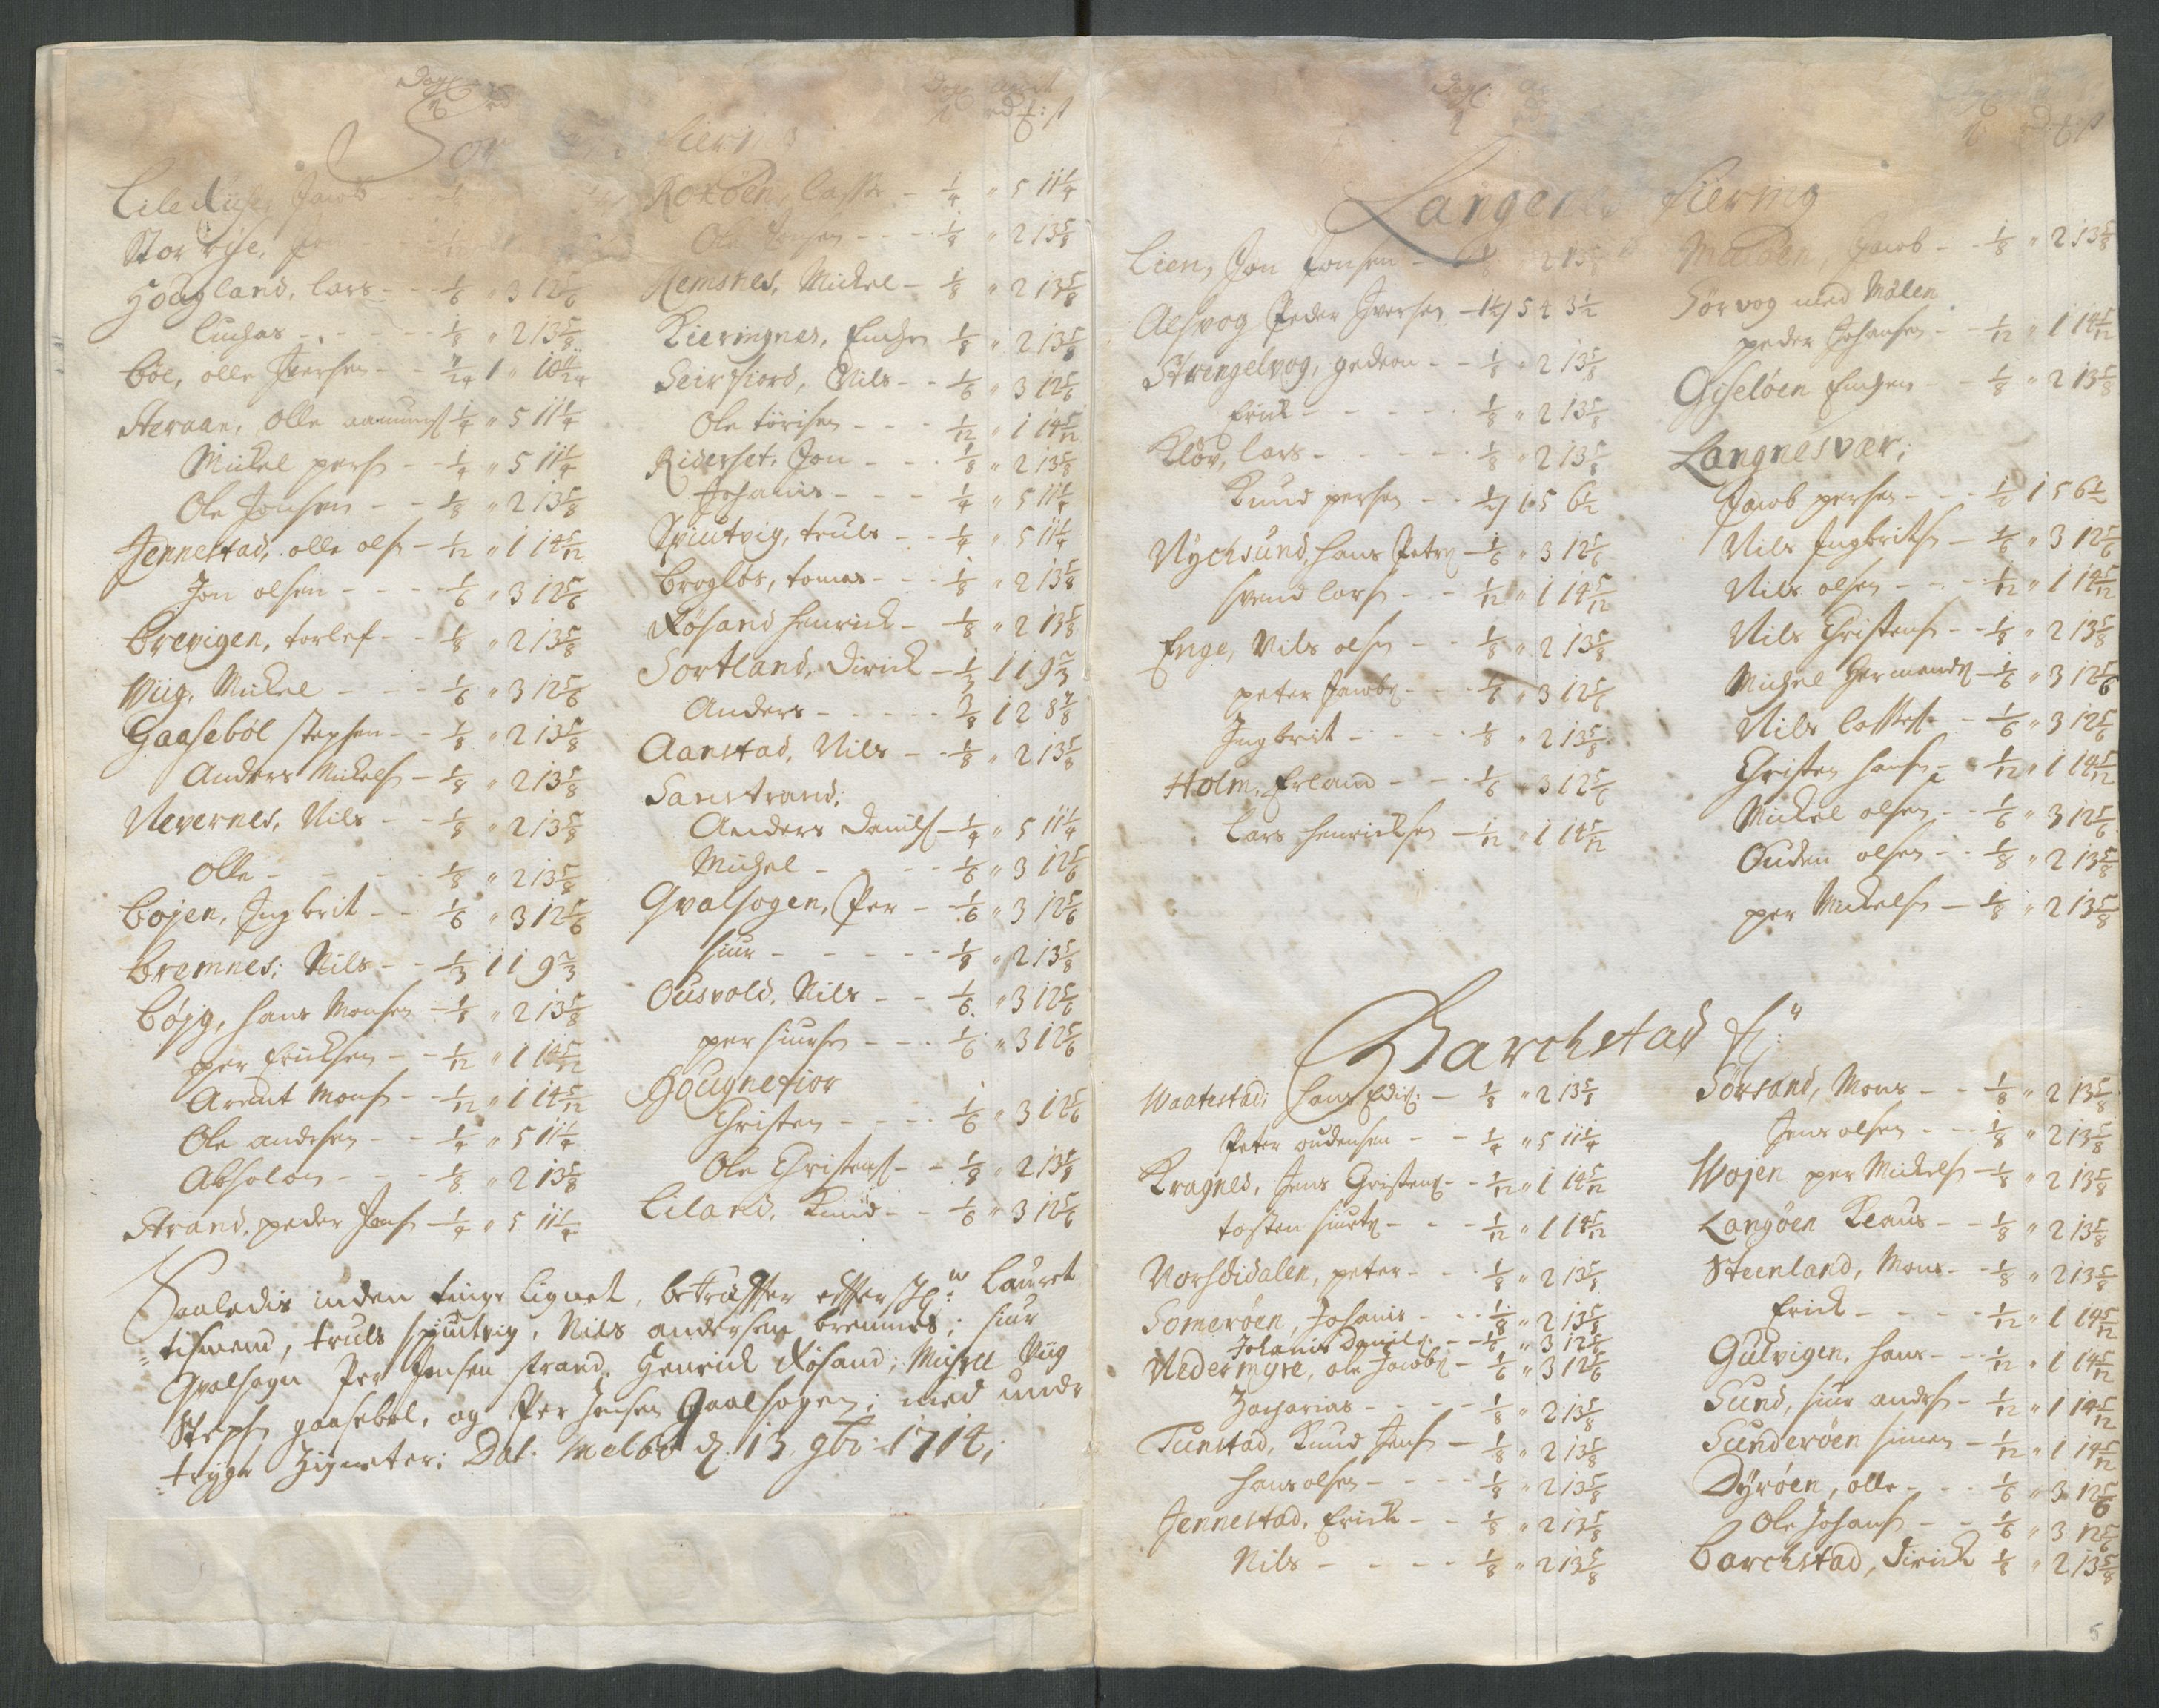 Sor fiering
Hougland, lars - - 1/6 " 3 12 5/6
Luchas - - - - 1/8 " 2 13 5/8
Böe, olle Jversen - - 7/24 1 " 10 11/24
Steraan, olle 1/4 " 5 11 1/4
Mickel persn - - 1/4 " 5 11 1/4
Ole Jonsen - - 1/8 " 2 13 5/8
Jennestad, olle olsn - 1/12 " 1 14 5/12
Jon olsen - - - 1/6 " 3 12 5/6
Brevigen, torlef - - 1/8 " 2 13 5/8
Wiig, Mickel - - - 1/6 " 3 12 5/6
Gaasebøl stephen - - 1/8 " 2 13 5/8
Anders Mickelsn - 1/8 " 2 13 5/8
Nevernes, Nils - - 1/8 " 2 13 5/8
Olle - - - - 1/8 " 2 13 5/8
Bojen, Jngbrit - - 1/6 " 3 12 5/6
Bremnes; Nils - - 1/3 1 1 9 2/3
Böyg, hans Monsen - 1/8 " 2 13 5/8
per Ericksen - - 1/12 " 1 14 5/12
Arent Monsn - - 1/12 " 1 14 5/12
Ole andersen - - 1/4 " 5 11 1/4
Absolon - - - 1/8 " 2 13 5/8
Strand, peder Jensn - 1/4 " 5 11 1/4
Rokøen, lasse - 1/4 " 5 11 1/4
Ole Jensen - - - 1/8 " 2 13 5/8
Hemsnes, Mickel - 1/8 " 2 13 5/8
Kieringnes, 1/8 " 2 13 5/8
Seirfiord, Nils - - 1/6 " 3 12 5/6
Ole törisen - - - 1/12 " 1 14 5/12
Riderset, Jon - - - 1/8 " 2 13 5/8
Johanis - - - 1/4 " 5 11 1/4
Spiutvig, truls - - 1/4 " 5 11 1/4
Brogløs, tomas - - 1/8 " 2 13 5/8
Røsand henrick - 1/8 " 2 13 5/8
Sortland, Dirick - 1/3 1 1 9 2/3
Anders - - - - 3/8 1 2 8 7/8
Aanstad, Nils - - 1/8 " 2 13 5/8
Sanstrand;
Anders Danielsn - 1/4 " 5 11 1/4
Michel - - - 1/6 " 3 12 5/6
Qvalsogen, Per - 1/6 " 3 12 5/6
siur - - - - - 1/8 " 2 13 5/8
Ousvold, Nils - - 1/6 " 3 12 5/6
per siursen - - - 1/6 " 3 12 5/6
Hougnefior
Christen - - - - 1/6 " 3 12 5/6
Ole Christensn - - 1/8 " 2 13 5/8
Liland, Knud - - 1/6 " 3 12 5/6
Saaledis inden tinge lignet, betræffer Lauret
tismend, truls spiutvig, Nils andersen bremnes; siur
Qvalsogn Per Jensen strand, Henrick Røsand; Michel Viig
Stephn gaasebøl, og Per Jensen Qvalsogen; med under
trygte Zigneter; Dat. Melboe d. 13 9br: 1714;
Langenes fiering
Lien, Jon Jonsen - 1/8 " 2 13 5/8
Alsvog Peder Jversen - 1 1/2 5 4 3 1/2
Strengelvog, gedeon - - 1/8 " 2 13 5/8
Erick - - - - - 1/8 " 2 13 5/8
Kløv, lars - - - - - 1/8 " 2 13 5/8
Knud persen - - 1/2 1 5 6 1/2
Nychsund, hans Petrs - 1/6 " 3 12 5/6
svend larsn - - 1/12 " 1 14 5/12
Enge, Nils olsn - - 1/8 " 2 13 5/8
peter Jacobs - - - 1/6 " 3 12 5/6
Jngbrit - - - - 1/8 " 2 13 5/8
Holm, Erland - - - 1/6 " 3 12 5/6
Lars henricksen - 1/12 " 1 14 5/12
Maloen, Jacob - - 1/8 " 2 13 5/8
Sørvog med Målen
peder Johansen - - 1/12 " 1 14 5/12
Giseløen - - 1/8 " 2 13 5/8
Langnesvær;
Jacob persen - - - 1/2 1 5 6 1/2
Nils Jngbritsn - 1/6 " 3 12 5/6
Nils olsen - - - 1/12 " 1 14 5/12
Nils Christensn - - 1/8 " 2 13 5/8
Michel Hermands - 1/6 " 3 12 5/6
Nils lassesn - - 1/6 " 3 12 5/6
Christen hansn - - 1/12 " 1 14 5/12
Mickel olsen - - 1/6 " 3 12 5/6
Ouden olsen - - 1/8 " 2 13 5/8
per Mickelsn - 1/8 " 2 13 5/8
Barchstad f:
Waatestad; hans - 1/8 " 2 13 5/8
Peter oudensen - - 1/4 " 5 11 1/4
Kragnes, Jens Christens - - 1/12 " 1 14 5/12
tosten siurts - - - 1/12 " 1 14 5/12
Vorhdidalen, peter - - 1/8 " 2 13 5/8
Somerøen, Johanis - - 1/8 " 2 13 5/8
Johanis Daniels - - 1/6 " 3 12 5/6
Nedermyre, ole Jacobs - 1/6 " 3 12 5/6
Zacharias - - - - 1/8 " 2 13 5/8
Tunstad, Knud Jensn - 1/8 " 2 13 5/8
hans olsen - - - - 1/8 " 2 13 5/8
Jennestad, Erick - - 1/8 " 2 13 5/8
Nils - - - - - 1/8 " 2 13 5/8
Sörsand, Mons - - 1/8 " 2 13 5/8
Jens olsen - - - 1/8 " 2 13 5/8
Wojen per Mickelsn - 1/8 " 2 13 5/8
Langøen Klaus - - 1/8 " 2 13 5/8
Steenland, Mons - - 1/8 " 2 13 5/8
Erick - - - - 1/12 " 1 14 5/12
Gulvigen, hans - - 1/12 " 1 14 5/12
Sund, siur andersn - 1/12 " 1 14 5/12
Sunderöen simen - 1/12 " 1 14 5/12
Dyröen, olle - - - 1/6 " 3 12 5/6
Ole Johansn - - 1/6 " 3 12 5/6
Barchstad, Dirick 1/8 " 2 13 5/8
5